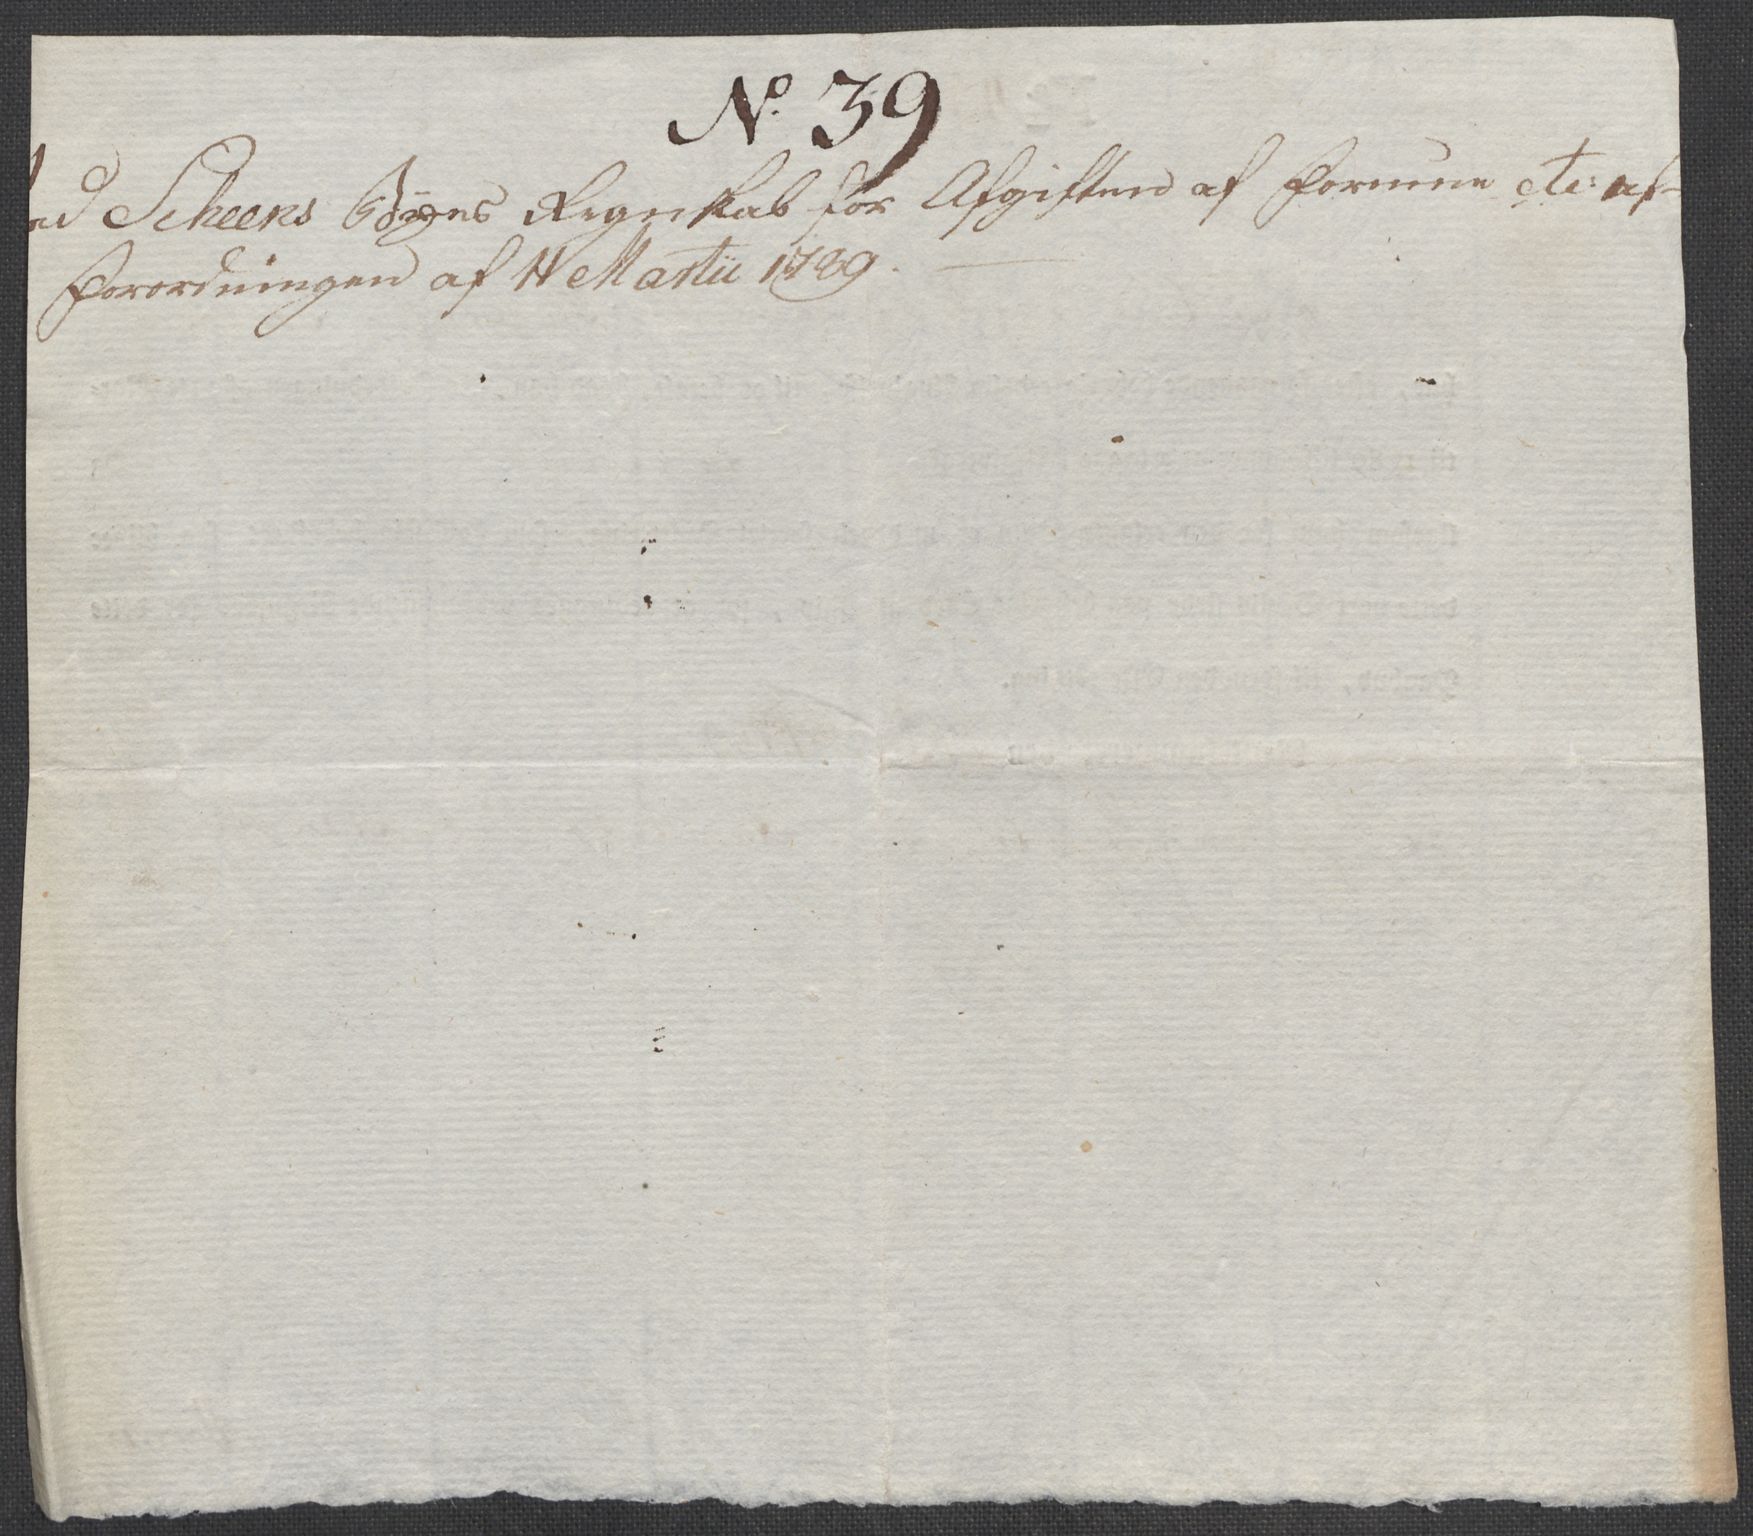 No. 39
ad Scheens Byes Regnskab for Afgiften af Formue etc: af
Forordningen af 11 Martii 1789.